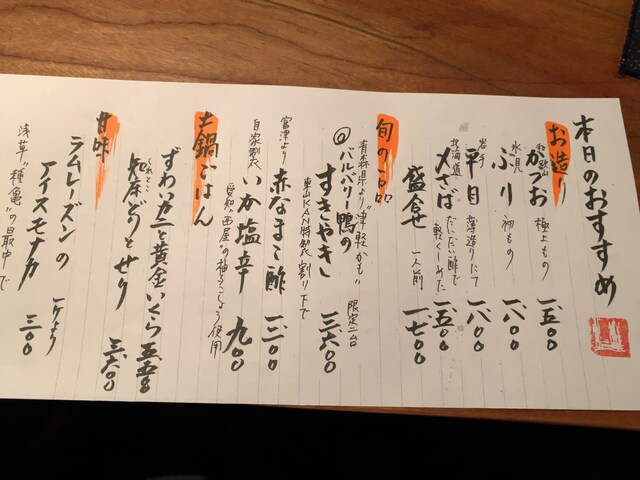 本日のおすすめ
お造り
和歌山 かつお 極上もの 一、五〇〇
氷見 ぶり 初もの 一、八〇〇
岩手 平目 薄造りたて 一、八〇〇
北海道 〆さば だいだい酢で軽くしめた 一、五〇〇
盛合せ 一人前 一、七〇〇
旬の一品
青森県より"津軽かも" 限定二台
@バルバリー鴨の
すきやき 三、六〇〇
東山KAN特製割り下で
宮津より 赤なまこ酢 一、二〇〇
自家製 いか塩辛 九〇〇
愛知"西尾"の柚子こしょう使用
土鍋ごはん
ずわい蟹と黄金いくら 五、五〇〇
くれとこ
ぶりとせり 三、六〇〇
甘味
ラムレーズンの
アイスモナカ 一ケより 三〇〇
浅草"種亀"の最中で